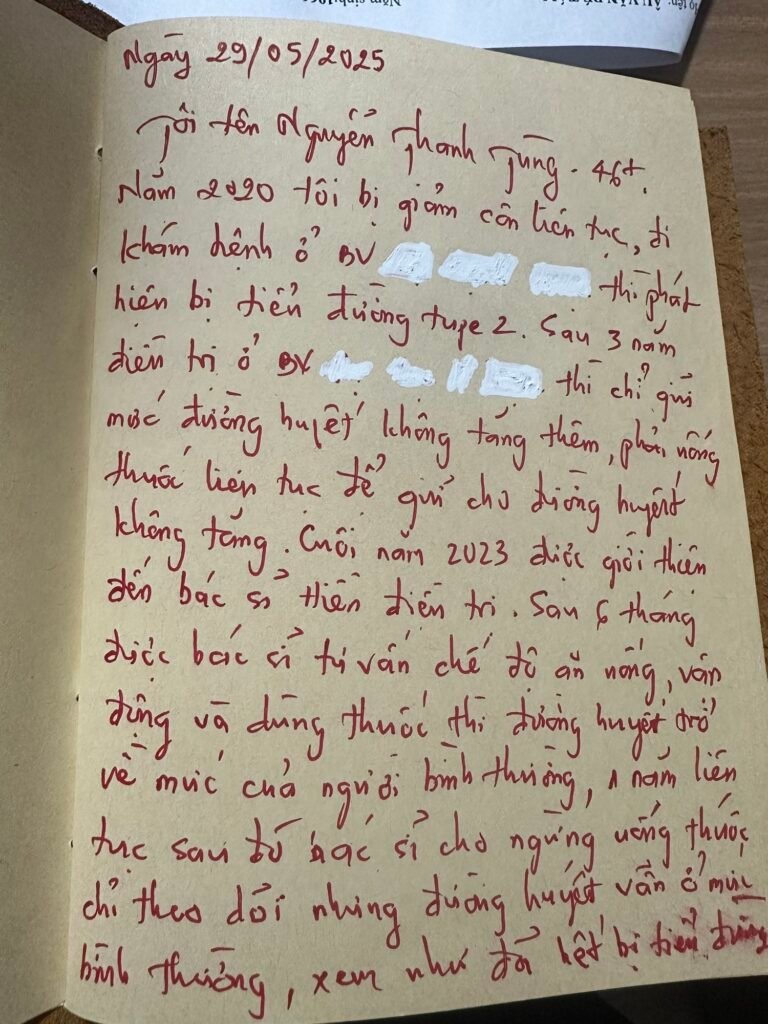 Ngày 29/05/2025
Tôi tên Nguyễn Thanh Tùng - 46t.
Năm 2020 tôi bị giảm cân liên tục, đi
khám bệnh ở BV thì phát
hiện bị tiểu đường type 2. Sau 3 năm
điều trị ở BV thì chỉ giữ
mức đường huyết không tăng thêm, phải uống
thuốc liên tục để giữ cho đường huyết
không tăng. Cuối năm 2023 được giới thiệu
đến bác sĩ điều trị. Sau 6 tháng
được bác sĩ tư vấn chế độ ăn uống, vận
động và dùng thuốc thì đường huyết trở
về mức của người bình thường, 1 năm liên
tục sau đó bác sĩ cho ngừng uống thuốc
chỉ theo dõi nhưng đường huyết vẫn ở mức
bình thường, xem như đã hết bị tiểu đường